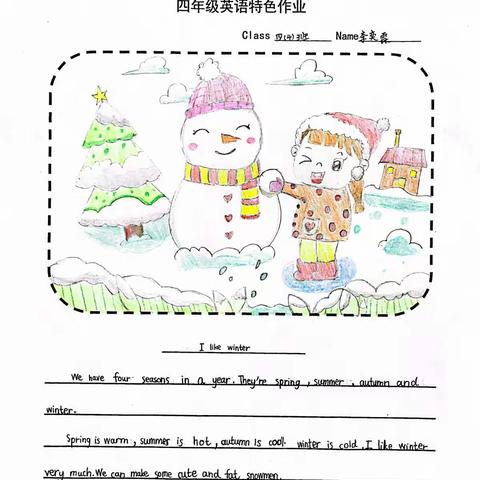 四年级英语特色作业
Class 四(4)班 Name李
I like winter
We have four seasons in a year. They're spring , summer , autumn and
winter.
Spring is warm , summer is hot , autumn is cool. winter is cold .I like winter
very much.We can make some cute and fat snowmen.